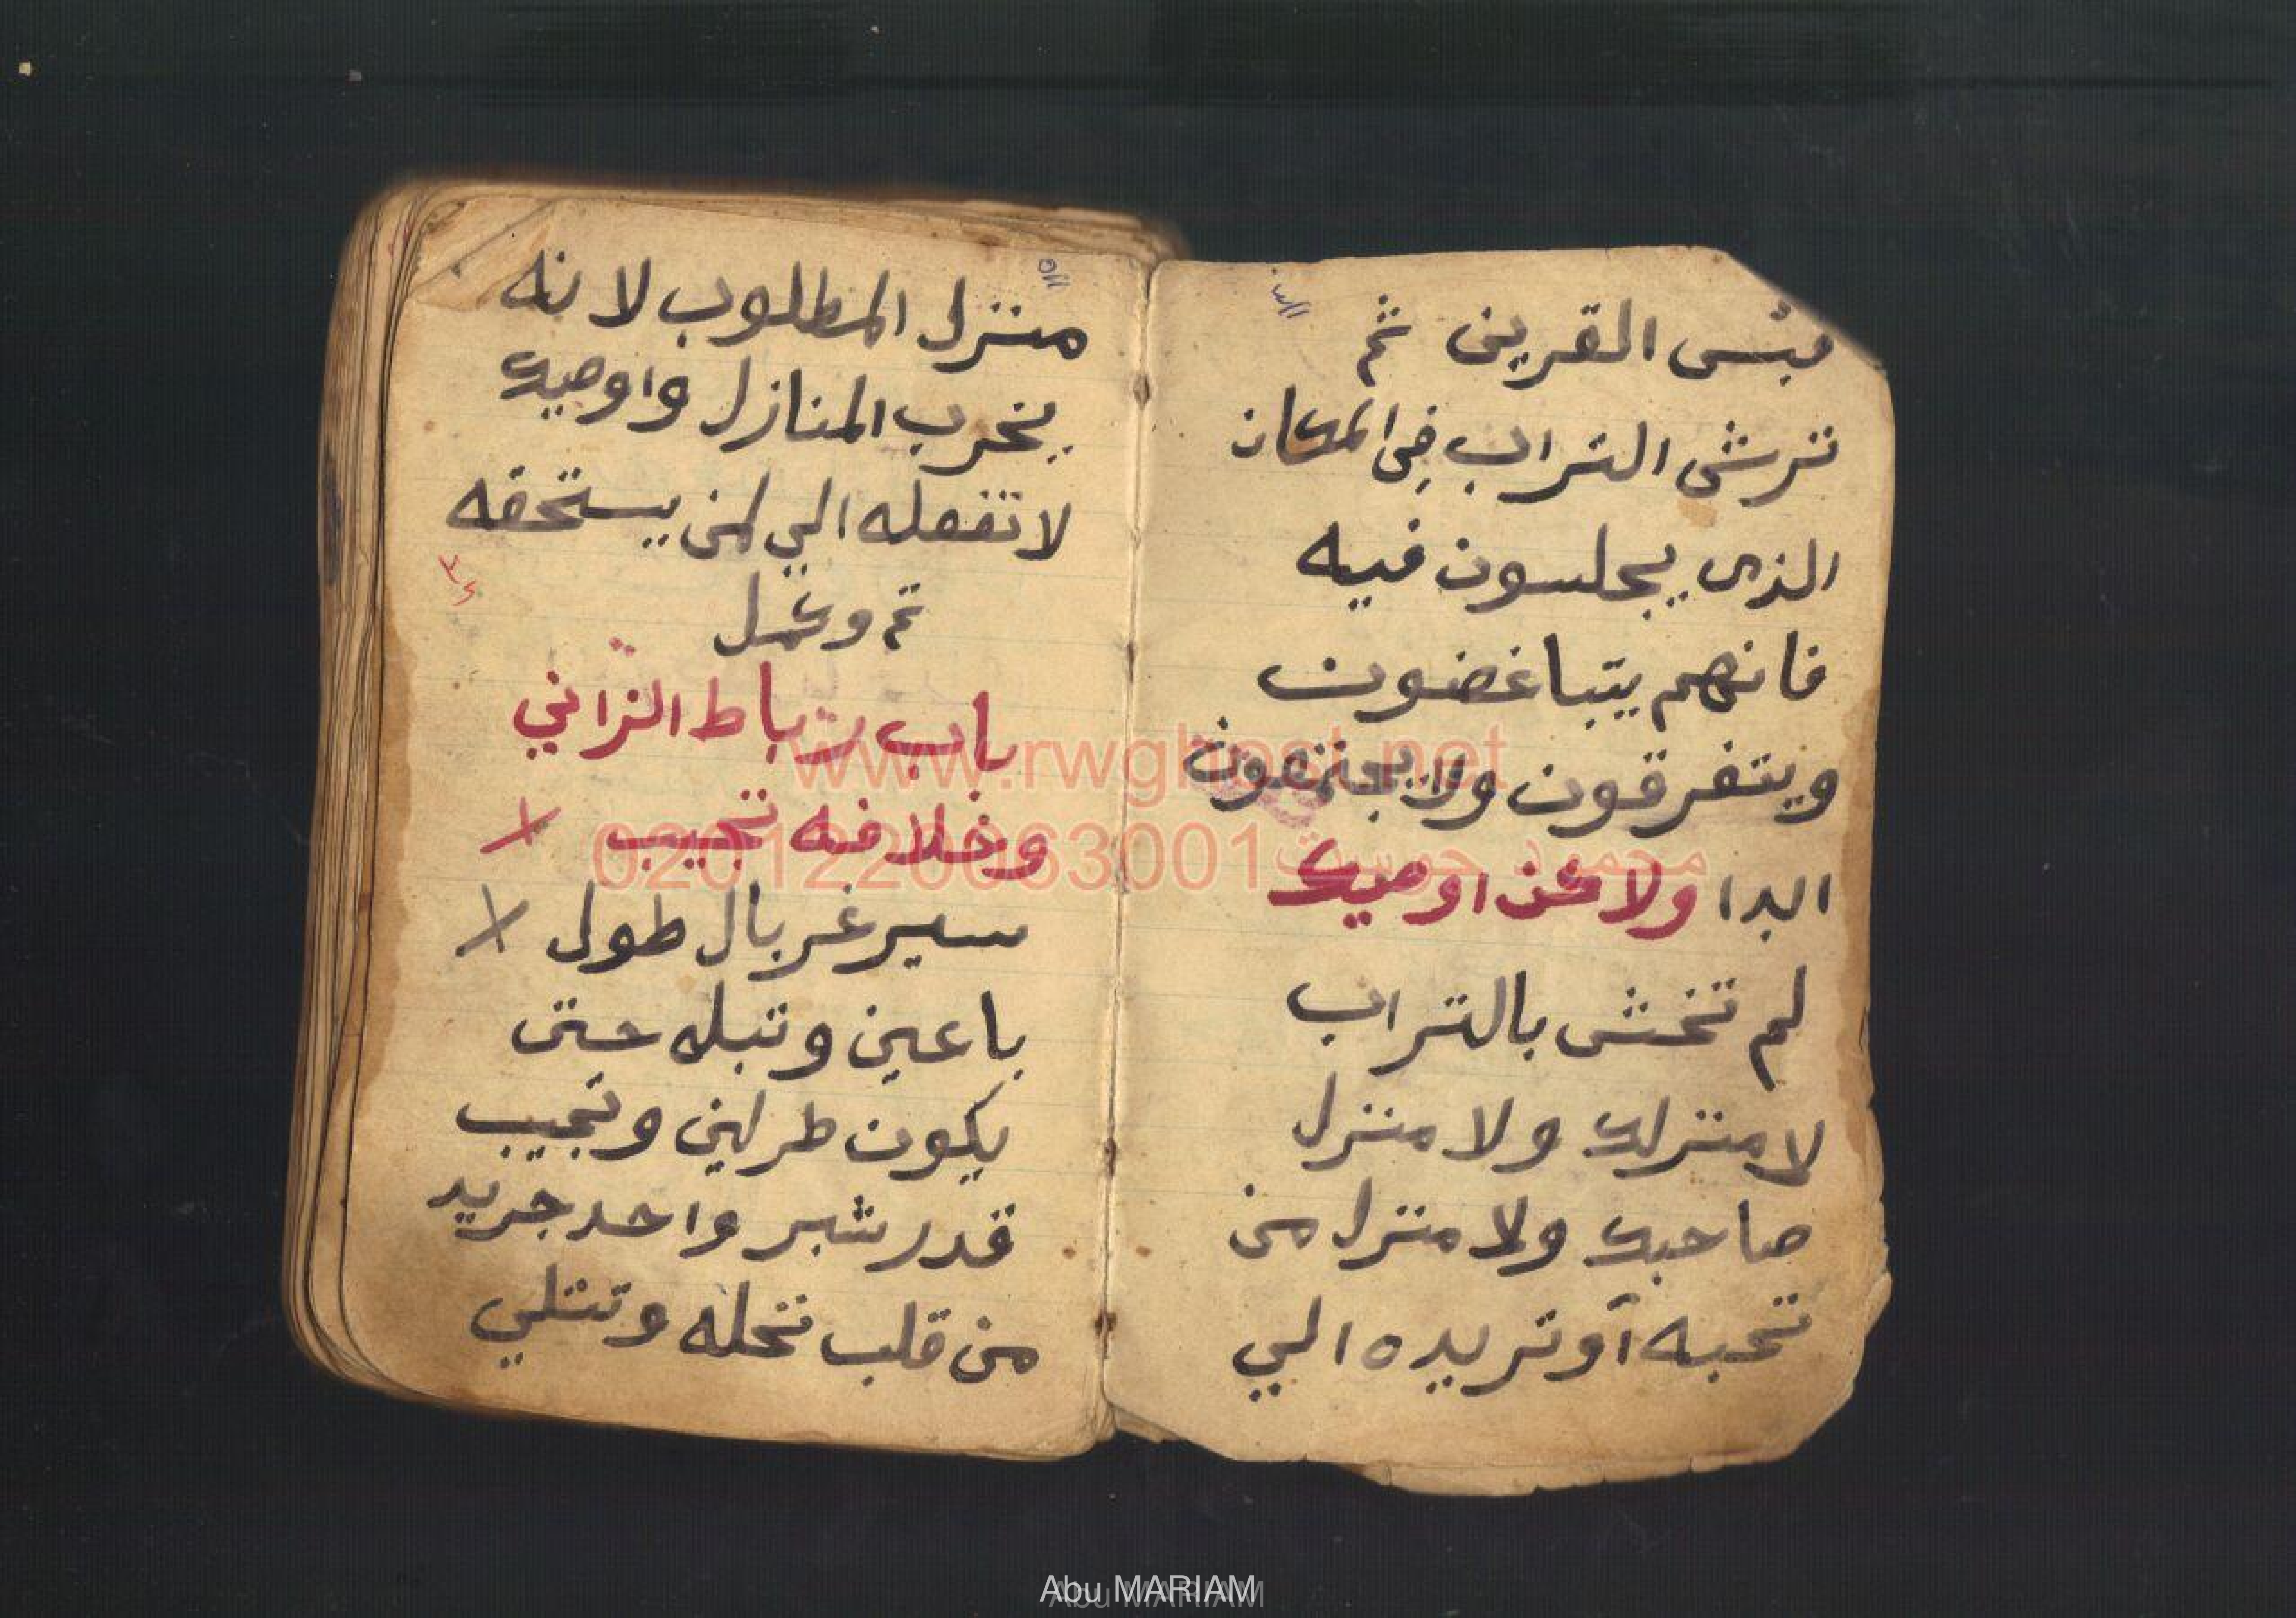 فبئس القرين ثم
ترش التراب في المكان
الذى يجلسون فيه
فانهم يتباغضون
ويتفرقون ولا يجتمعون
ابدا ولاكن اوصيك
لم تخش بالتراب
لا منزلك ولا منزل
صاحبك ولا منزل من
تحبه أو تريده الي
منزل المطلوب لانه
يخرب المنازل واوصيك
لا تفعله الي لمن يستحقه
تم وعمل
باب رباط الزاني
وخلافه تجيب
سير غربال طول
باعين وتبله حتى
يكون طرلين وتجيب
قدر شبر واحد جريد
من قلب نخله وتتلي
www.rwghost.net
0201220063001
Abu MARIAM